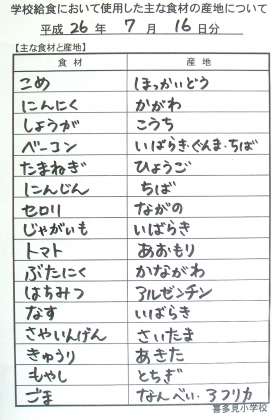 学校給食において使用した主な食材の産地について
平成 26 年 7 月 16 日分
【主な食材と産地】
食材 産地
こめ ほっかいどう
にんにく かがわ
しょうが こうち
ベーコン いばらき・ぐんま・ちば
たまねぎ ひょうご
にんじん ちば
セロリ ながの
じゃがいも いばらき
トマト あおもり
ぶたにく かながわ
はちみつ アルゼンチン
なす いばらき
さやいんげん さいたま
きゅうり あきた
もやし とちぎ
ごま なんべい・アフリカ
喜多見小学校